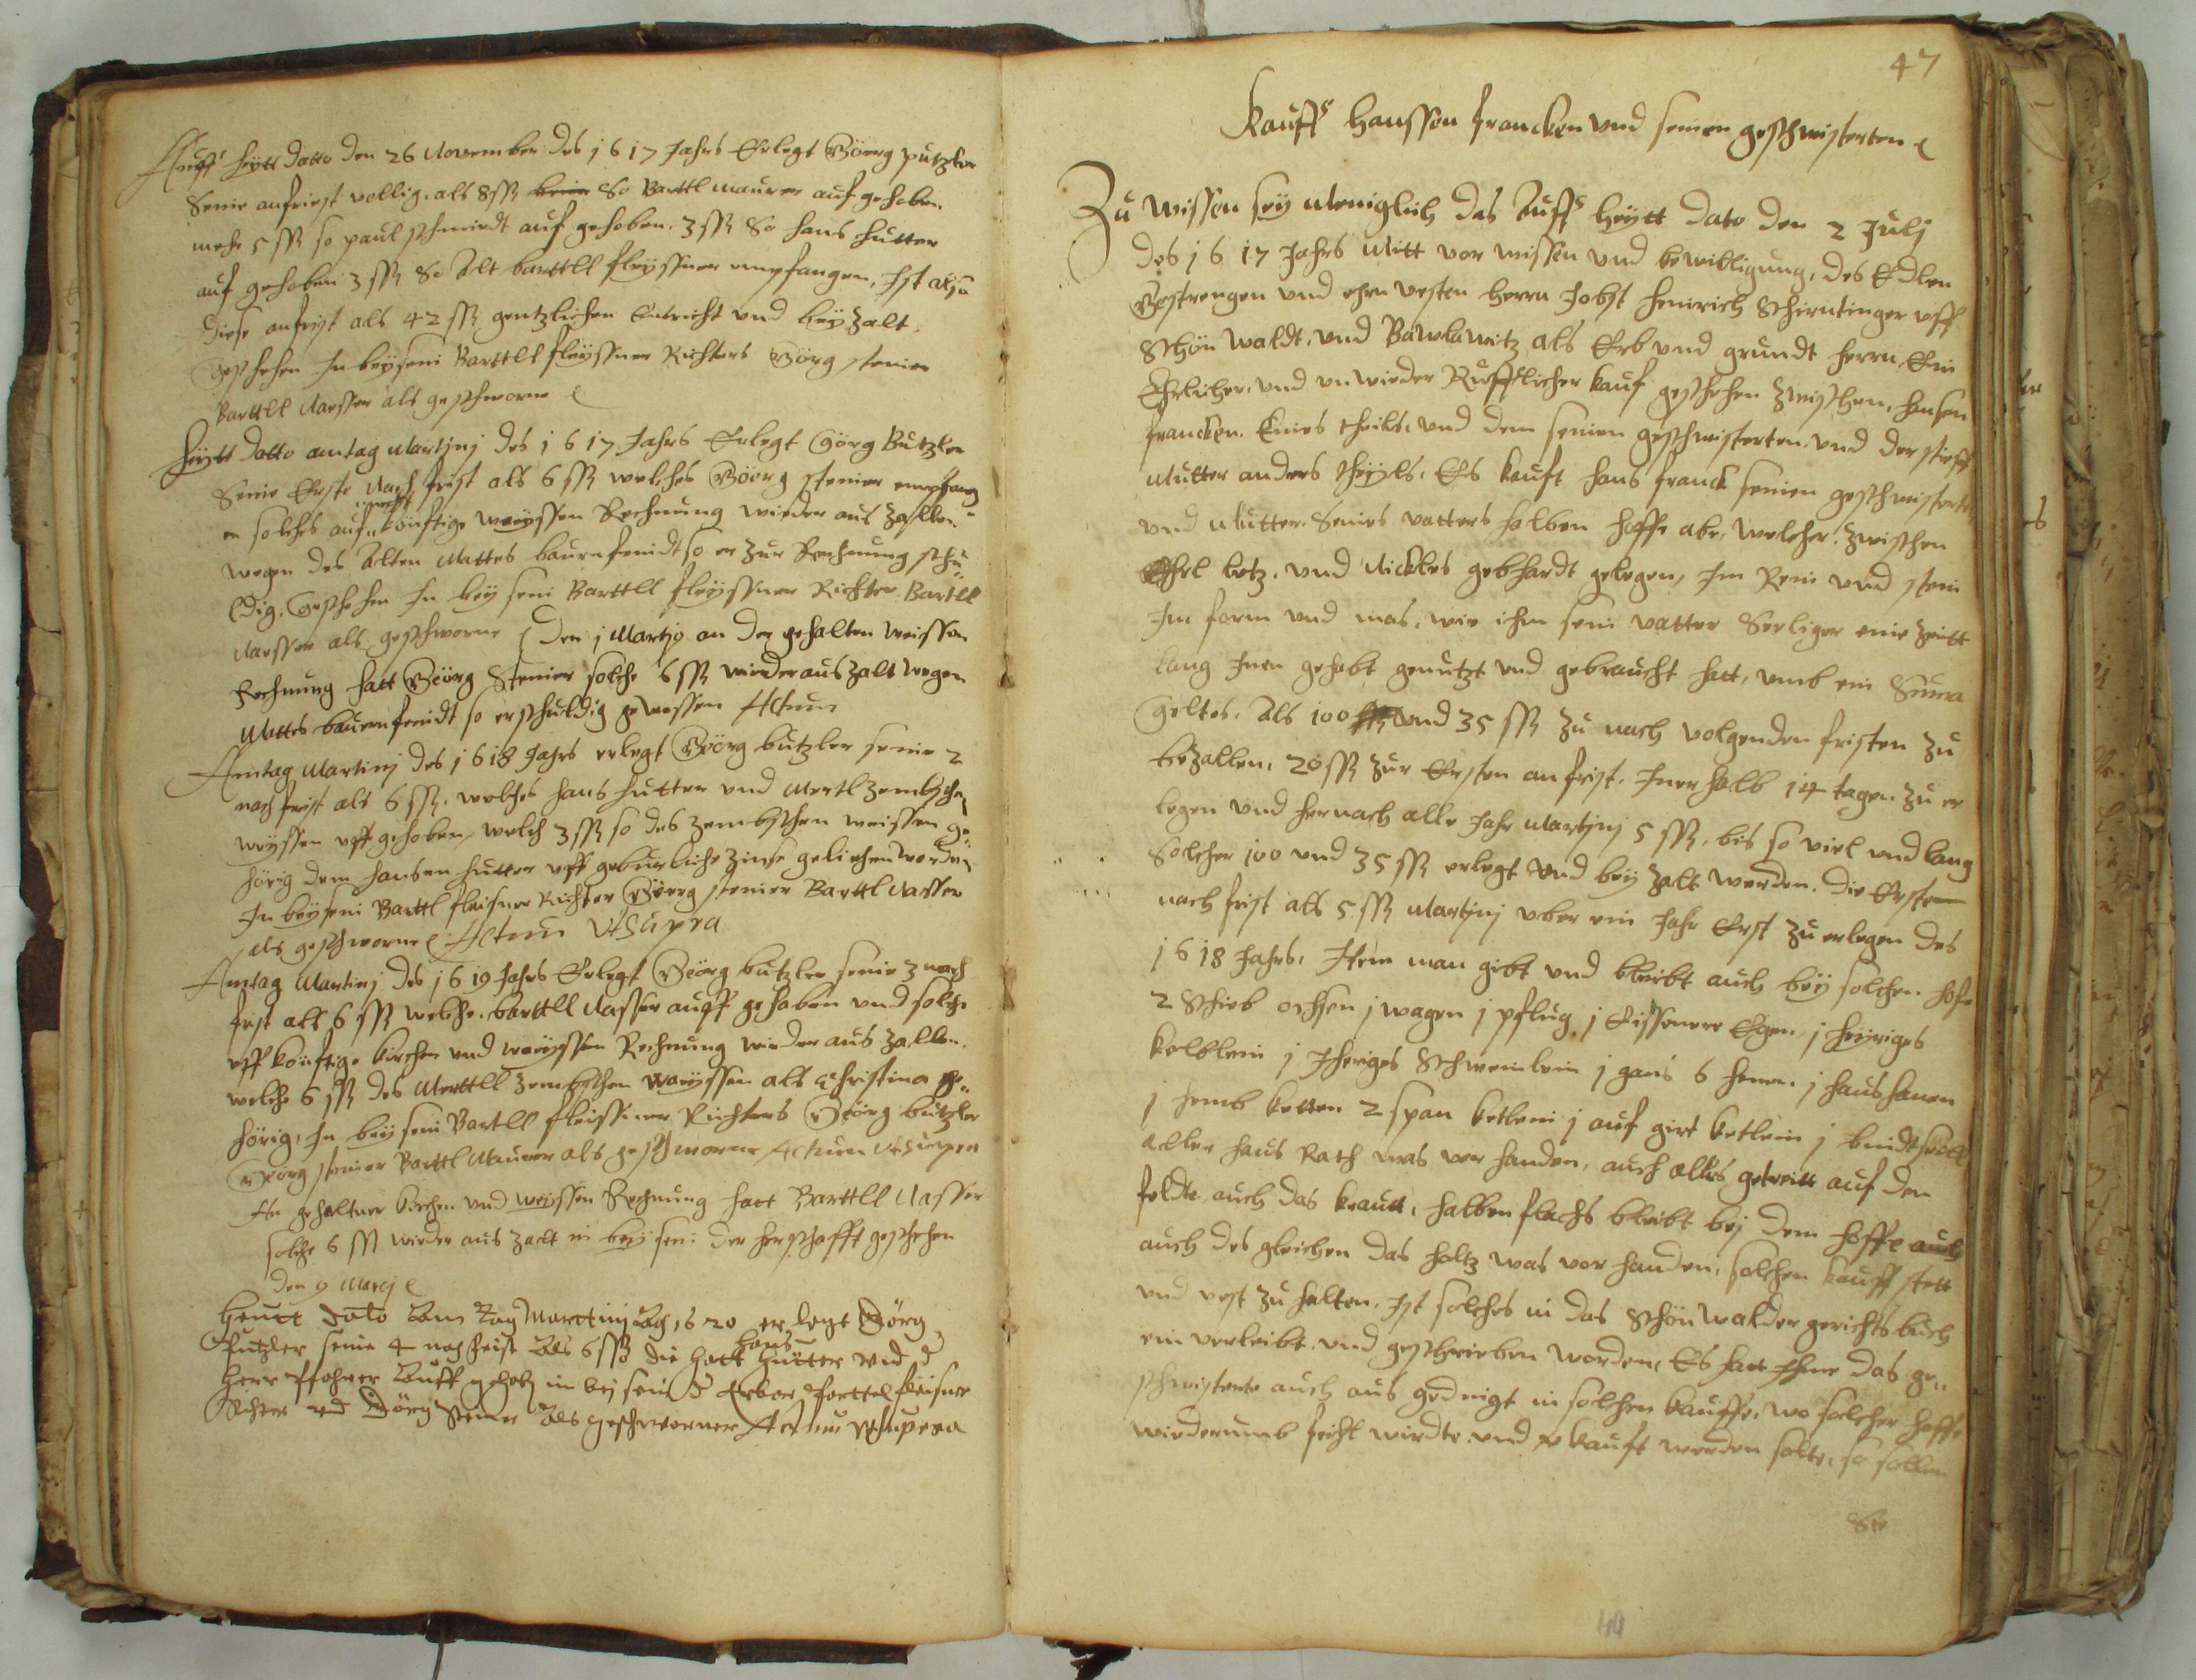 Auff heytt datto den 26 November des 1617 Jahrs Erlegt Göerg putzler
Seine anfriest vollig, als 8 ß So Barttl maurer auf gehoben
mehr 5 ß so paul schmiedt auf gehoben, 3 ß So hans hutter
auf gehoben 3 ß So Alt barttll fleyssner empfangen, Ist also
diese anfrist als 42 ß gentzlichen Entricht und bey zalt,
Geschehen In beysein Barttll fleyssner Richters Görg steiner
Barttll Nasser als geschworne
heytt datto amtag Martjnj des 1617 Jahrs Erlegt Görg Butzler
Seine Erste Nach frist als 6 ß welches Göerg steiner empfang
en solches auf könftige weyssen Rechnung wieder aus zallen
wegen des Alten Mattes baurnfeindt so er zur Rechnung schu
ldig, Geschehen In bey sein Barttll fleyssner Richter Bartll
Nasser als geschworne Den 1 Martjo an der gehalten weissen
Rechnung hatt Göerg Steiner solche 6 ß wieder aus zalt wegen
Mattes baurnfeindt so er schuldig gewessen Actum
Amtag Martinj des 1618 Jahrs erlegt Göerg butzler seine 2
nach frist als 6 ß, welches hans hutter und Mertl zembschen
weyssen uff gehoben, welch 3 ß so des zembschen weissen ge
hörig dem hansen hutter uff geburliche zinse geliehen worden
In beysein Barttl fleisner Richter Göerg steiner Barttl Nasser
als geschworne Actum Ut Supra
Amtag Martinj des 1619 Jahrs Erlegt Göerg butzler seine 3 nach
frist als 6 ß welche, barttll Nasser auff gehoben und solche
uff könftige kirchen und weyssen Rechnung wieder aus zallen,
welche 6 ß des Merttll zembschen weyssen als Christina ge
hörig, In bey sein Bartll fleissner Richters Göerg butzler
Göerg steiner Barttl Maurer als geschworne Actum Ut Supra
An gehaltner kirchen und weissen Rechnung hatt Barttll Nasser
solche 6 ß wieder aus zalt in beysein der herschafft geschehen
den 9 Marcj
Heutt dato Am Tag Marttinj 1620 erlegt Görg
Putzler seine 4 nachfrist Als 6 ß die hatt hans hutter und d
herr Pfahrer Auff gehobn in bej sein Erbar Barttel fleisner
Richter und Görg Steiner Als geschworner Actum ut supera
47
Kauff Hanssen Francken und seinen geschwisterten
Zu Wissen sey Meniglich das Auff heytt dato den 2 Julj
des 1617 Jahrs Mitt vor wissen und bewilligung, des Edlen
Gestrengen und ehrn vesten herrn Jobst Heinrich Schirntinger uff
Schön waldt, und Bawlawitz als Erb und grundt herrn, Ein
Ehrlicher, und un wieder Rufflicher kauf geschehen zwischen, hansen
francken, Eines theils, und dem seinen geschwisterten, und der stieff
Mutter anders theyls, Es kauft hans franck seinen geschwisterten
und Mutter, Seines vatters halben hoffe abe, welcher, zwischen
Ehrl betz, und Nickles gebhardt gelegen, Im Rein und stein
Im form und mas, wie ihn sein vatter Seeliger eine zeitt
lang Inen gehabt genutzt und gebraucht hatt, umb ein Suma
Geltes, Als 100 und 35 ß zu nach volgenden fristen zu
bezallen, 20 ß zur Ersten an frist, Inerhalb 14 tagen zu er
legen und hernach alle Jahr Martjnj 5 ß, bis so viel und lang
Solcher 100 und 35 ß erlegt und bey zalt werden, die Ersten
nach frist als 5 ß Martjnj uber ein Jahr Erst zu erlegen des
1618 Jahrs, Item man gibt und bleibt auch bey solchen hofe
2 Schieb ochsen 1 wagen 1 pflug 1 Eissenere Egen, 1 heyriges
kelblein 1 Jheriges Schweinlein 1 gans 6 henen, 1 haus hanen
1 hemb ketten 2 span ketlein 1 auf girt ketlein 1 bindtseill
aller haus Rath was vor handen, auch alles getreitt auf dem
feldte auch das kraut, halben flachs bleibt bej dem hoffe auch
auch des gleichen das holtz was vor handen, solchen kauff stett
und vest zu halten, Ist solches in das Schön walder gerichts buch
ein verleibt, und geschrieben worden, Es hatt Ihme das ge
schwisterte auch aus gedingt in solchen kauffe, wo solcher hoffe
wiederumb feihl wirdte und v kauft werden solte, so sollen
Sie